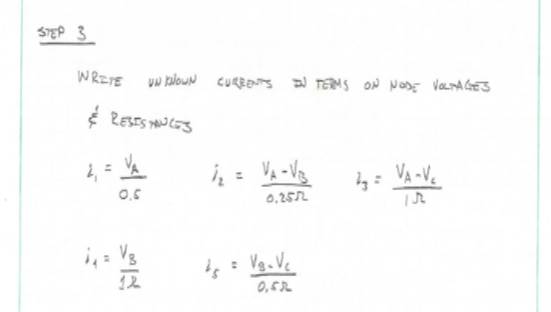 STEP 3
WRITE UNKNOWN CURRENTS IN TERMS ON NODE VOLTAGES
& RESISTANCES
i₁ = V_A / 0.5    i₂ = V_A - V_B / 0.25Ω    i₃ = V_A - V_C / 1Ω
i₄ = V_B / 1Ω    i₅ = V_B - V_C / 0.5Ω